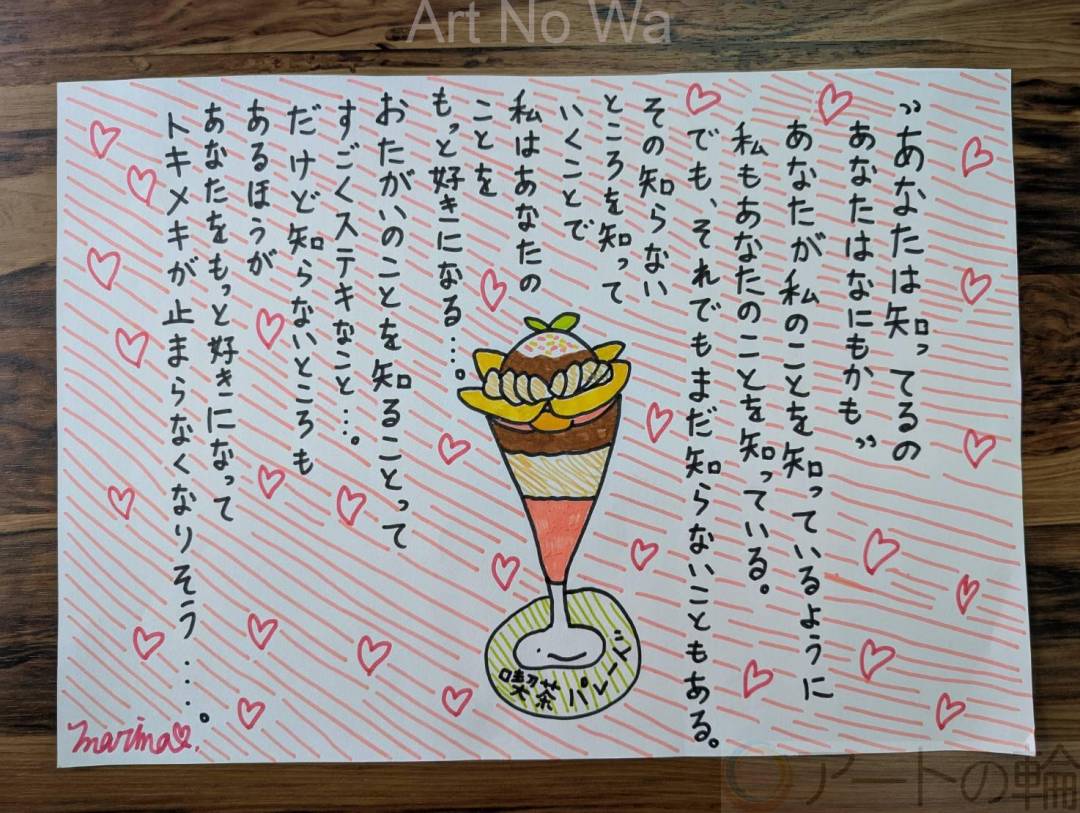 Art No Wa
"あなたは知ってるの
あなたはなにもかも"
あなたが私のことを知っているように
私もあなたのことを知っている。
でも、それでもまだ知らないこともある。
その知らない
ところを知って
いくことで
私はあなたの
ことを
もっと好きになる....。
おたがいのことを知ることって
すごくステキなこと....。
だけど知らないところも
あるほうが
あなたをもっと好きになって
トキメキが止まらなくなりそう.....。
喫茶パレード
marina
アートの輪